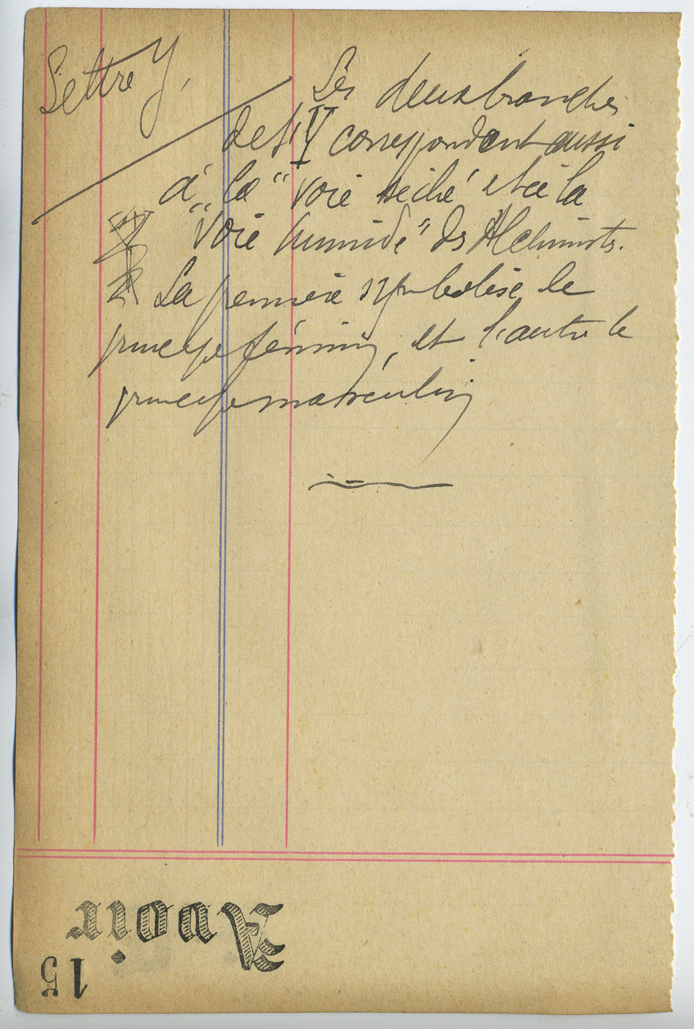 Lettre Y,
Les deux branches
de l'Y correspondent aussi
à "la "voie sèche" et à la
"voie humide" des Alchimists.
La première symbolise le
principe féminin, et l'autre le
principe masculin
Avoir
15